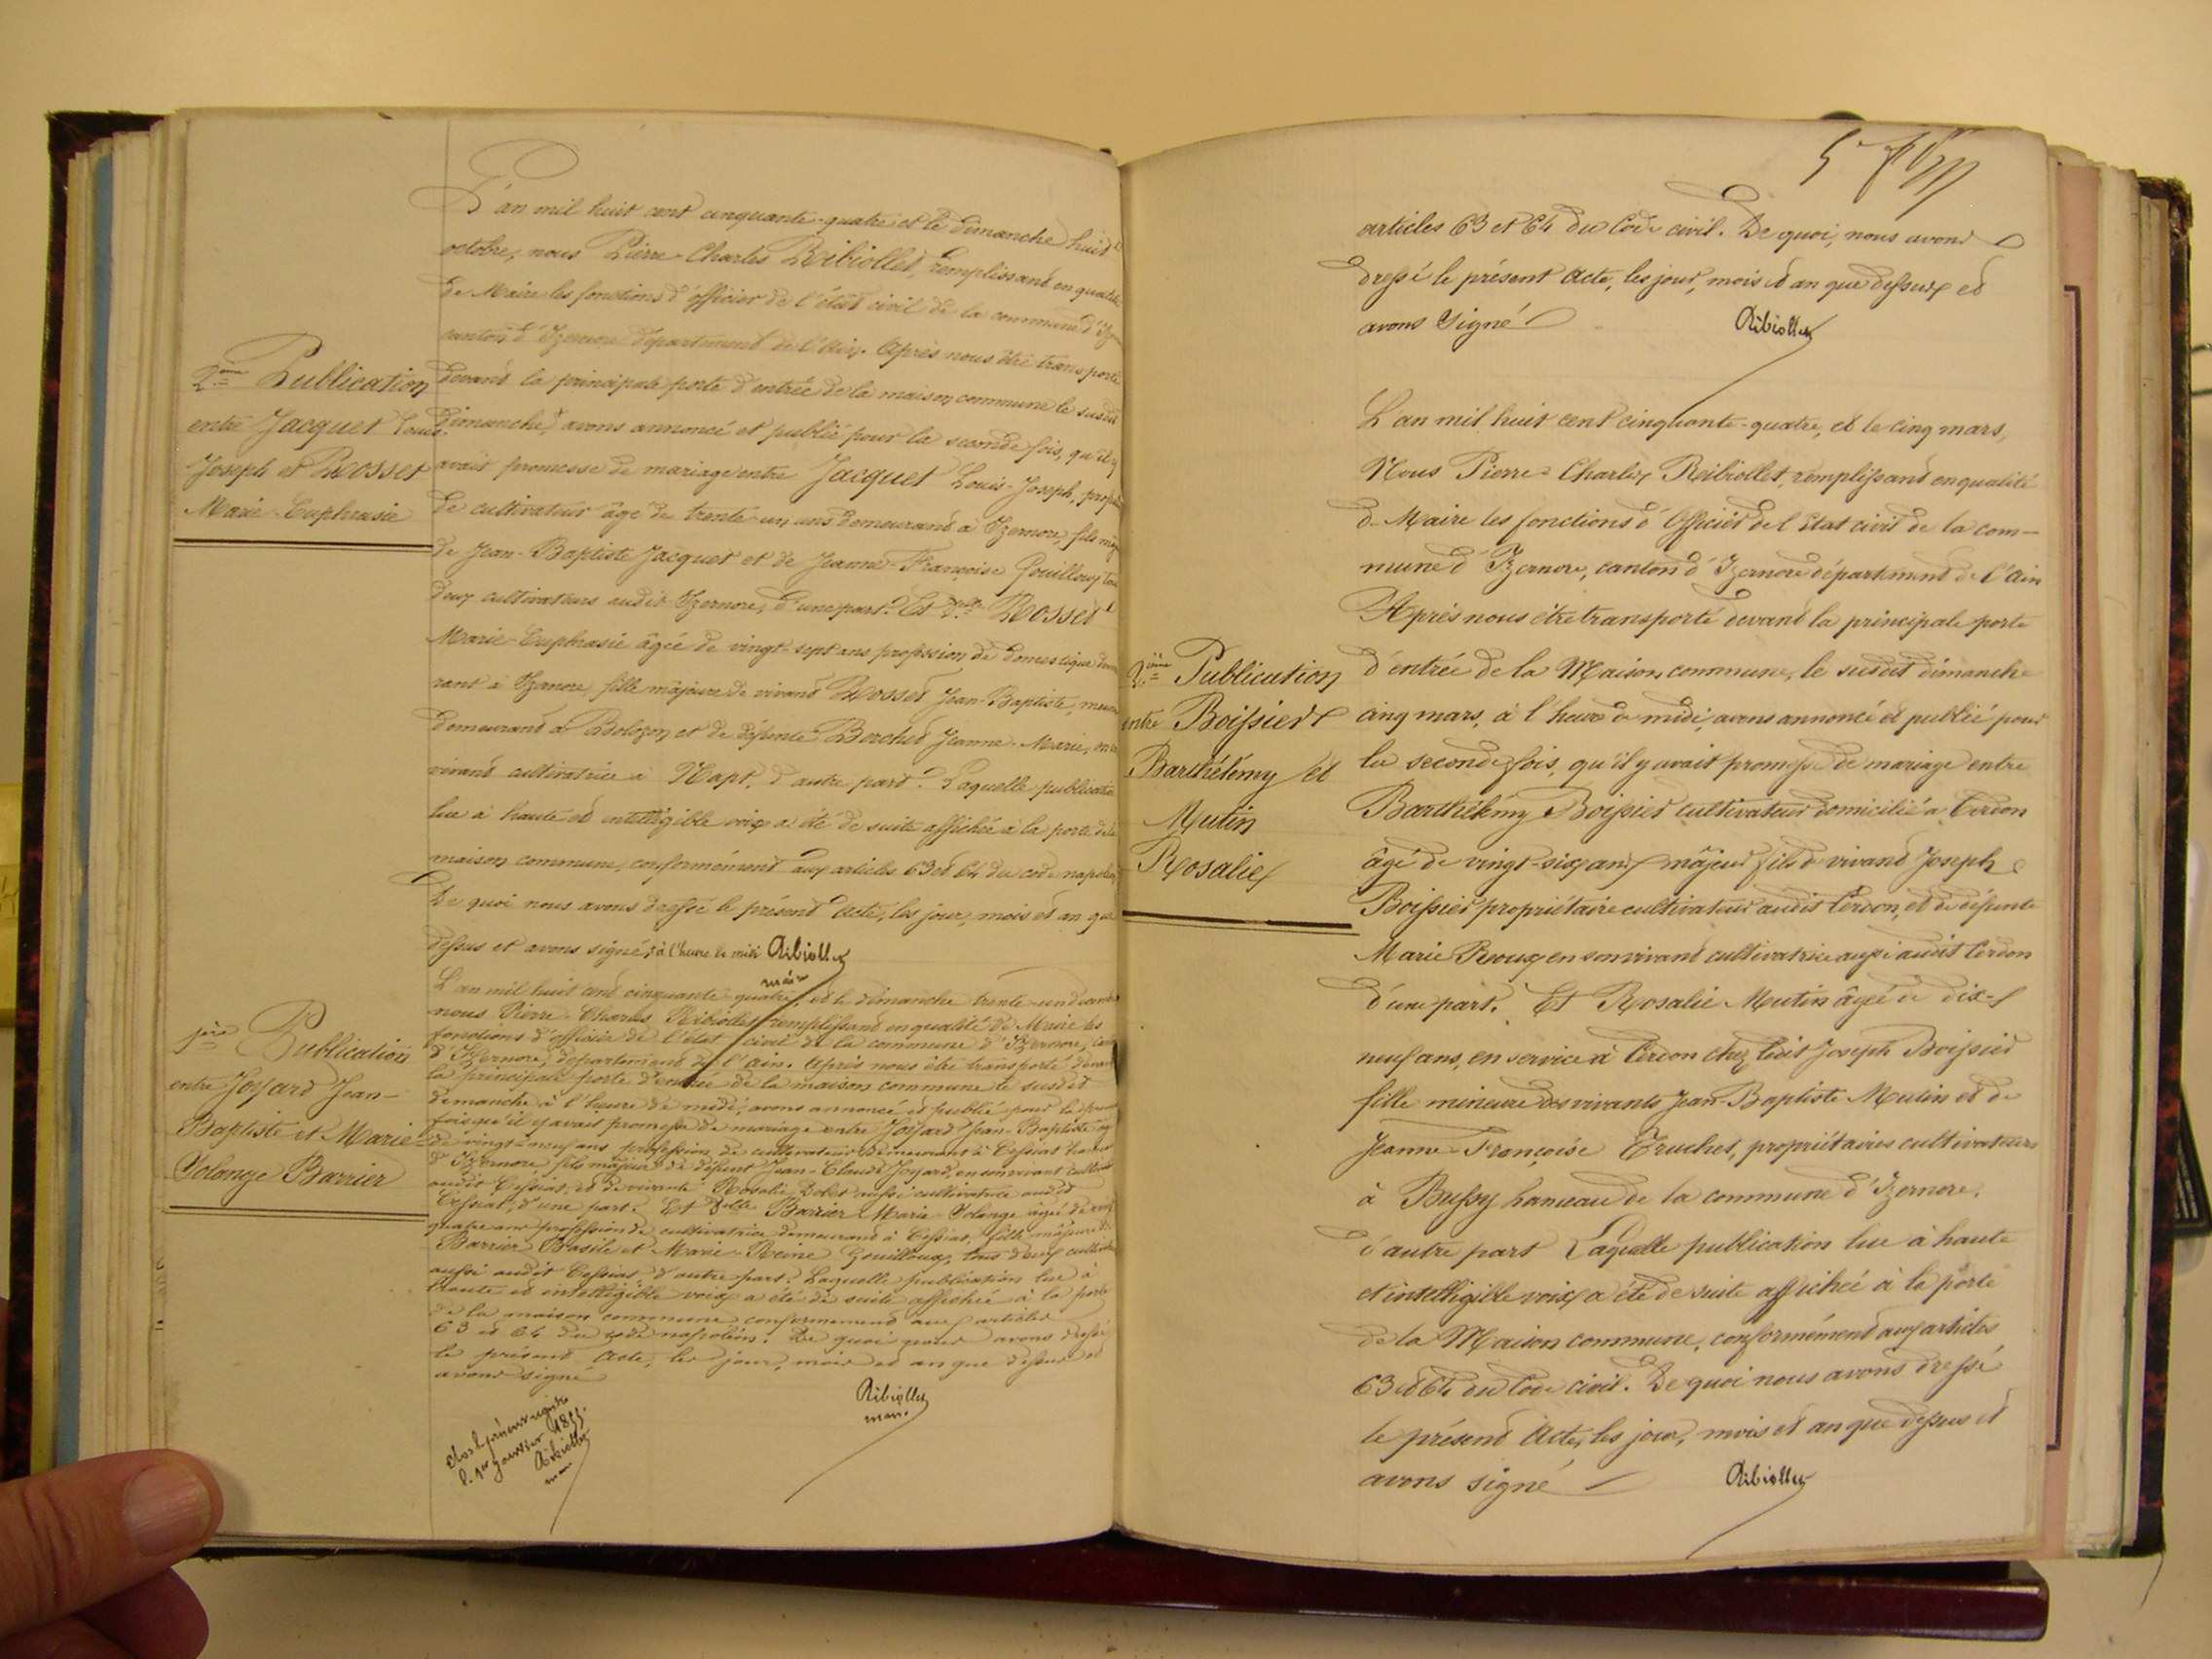 L'an mil huit cent cinquante-quatre et le dimanche huit
octobre, nous Pierre-Charles Ribiollet, remplissant en qualité
de Maire les fonctions d'officier de l'état civil de la commune d'
canton d'Izernore département de l'Ain. Après nous être transporté
2ème Publication
entre Jacquet Louis-
Joseph et Rosset
Marie-Euphrasie
devant la principale porte d'entrée de la maison commune le susdit
dimanche, avons annoncé et publié pour la seconde fois, qu'il y
avait promesse de mariage entre Jacquet Louis-Joseph,
de cultivateur âgé de trente-un ans demeurant à Izernore, fils
de Jean-Baptiste Jacquet et de Jeanne-Françoise Gouilloux,
deux cultivateurs audit Izernore, d'une part. Et Dlle Rosset
Marie-Euphrasie âgée de vingt-sept ans profession de domestique
rant à Izernore fille majeure de vivant Rosset Jean-Baptiste,
demeurant à Bolozon et de défunte Berchet Jeanne-Marie,
vivant cultivatrice à Napt, d'autre part. Laquelle publication
lue à haute et intelligible voix a été de suite affichée à la porte de la
maison commune, conformément aux articles 63 et 64 du code
De quoi nous avons dressé le présent acte, les jour, mois et an que
dessus et avons signé, à l'heure de midi Ribiollet
maire
1ère Publication
entre Joyard Jean-
Baptiste et Marie-
Solange Barrier
L'an mil huit cent cinquante quatre et le dimanche trente-un
nous Pierre-Charles Ribiollet remplissant en qualité de Maire les
fonctions d'officier de l'état civil de la commune d'Izernore,
d'Izernore, département de l'Ain. Après nous être transporté devant
la principale porte d'entrée de la maison commune le susdit
dimanche à l'heure de midi, avons annoncé et publié pour la
fois qu'il y avait promesse de mariage entre Joyard Jean-Baptiste
de vingt-neuf ans profession de cultivateur demeurant à Cessiat
d'Izernore fils majeur de défunt Jean-Claude Joyard, en son vivant
audit Cessiat, et de vivante Rosalie Dolet aussi cultivatrice audit
Cessiat, d'une part. Et Dlle Barrier Marie-Solange âgée de
quatre ans profession de cultivatrice demeurant à Cessiat, fille majeure de
Barrier Basile et Marie-Reine Gouilloux, tous deux
aussi audit Cessiat, d'autre part. Laquelle publication lue à
haute et intelligible voix a été de suite affichée à la porte
de la maison commune conformément aux articles
63 et 64 du code napoléon. De quoi nous avons dressé
le présent acte, les jour, mois et an que dessus et
avons signé
Ribiollet
maire
Clos le présent registre
le 1er janvier 1855.
Ribiollet
maire
articles 63 et 64 du Code civil. De quoi, nous avons
dressé le présent acte, les jour, mois et an que dessus et
avons signé
Ribiollet
L'an mil huit cent cinquante-quatre, et le cinq mars,
Nous Pierre-Charles Ribiollet, remplissant en qualité
de Maire les fonctions d'Officier de l'Etat civil de la com-
mune d'Izernore, canton d'Izernore département de l'Ain
Après nous être transporté devant la principale porte
2ème Publication
entre Boissier
Barthélémy et
Mutin
Rosalie
d'entrée de la Maison commune, le susdit dimanche
cinq mars, à l'heure de midi, avons annoncé et publié pour
la seconde fois, qu'il y avait promesse de mariage entre
Barthélémy Boissier cultivateur domicilié à Cerdon
âgé de vingt-six ans majeur fils de vivant Joseph
Boissier propriétaire cultivateur audit Cerdon, et de défunte
Marie Roux en son vivant cultivatrice aussi audit Cerdon
d'une part. Et Rosalie Mutin âgée de dix-
neuf ans, en service à Cerdon chez ledit Joseph Boissier
fille mineure des vivants Jean-Baptiste Mutin et de
Jeanne-Françoise Truchet, propriétaires cultivateurs
à Bussy hameau de la commune d'Izernore,
d'autre part Laquelle publication lue à haute
et intelligible voix a été de suite affichée à la porte
de la Maison commune, conformément aux articles
63 et 64 du Code civil. De quoi nous avons dressé
le présent acte, les jour, mois et an que dessus et
avons signé
Ribiollet